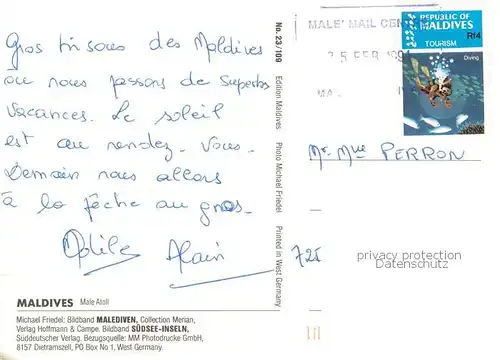 Gros bisous des Maldives
où nous passons de superbes
vacances. Le soleil
est au rendez-vous.
Demain nous allons
à la pêche au gros.
Odile Alain
MALDIVES Male Atoll
Michael Friedel: Bildband MALEDIVEN, Collection Merian,
Verlag Hoffmann & Campe. Bildband SÜDSEE-INSELN,
Süddeutscher Verlag. Bezugsquelle: MM Photodrucke GmbH,
8157 Dietramszell, PO Box No 1. West Germany.
No. 23/109 Edition Maldives Photo Michael Friedel Printed in West Germany
MALE' MAIL CENT
25 FEB 1991
REPUBLIC OF
MALDIVES
Rf4
TOURISM
Diving
Mr. Mme PERRON
72
privacy protection
Datenschutz